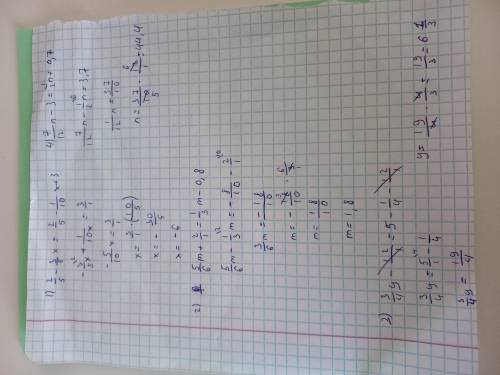 1) 2/5 - 3/5 x = 2/5 - 1/10 x + 3
-3/5 x + 1/10 x = 3/1
-5/10 x = 3/1
x = 3/1 · (-10/5)
x = -30/5
x = -6
2) 5/6 m + 2/1 = 1/3 m - 0,8
5/6 m - 1/3 m = -8/10 - 2/1
3/6 m = -18/10
m = 18/10
m = 1,8
3) 3/4 y - 1/2 = 5 - 1/4 - 1/2
3/4 y = 5/1 - 1/4
3/4 y = 19/4
y = 19/4 · 4/3 = 19/3 = 6 1/3
4) 7/12 n - 3 = 1/2 n + 0,7
7/12 n - 1/2 n = 3,7
1/12 n = 37/10
n = 37/10 · 12/1 = 44,4